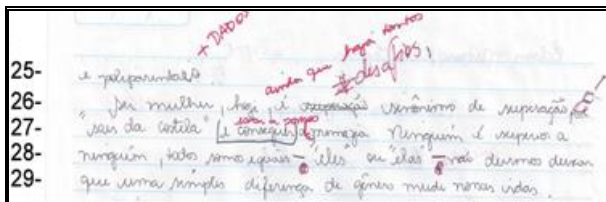 + DADOS
ainda que haja tantos
desafios,
25-
26- Ser mulher, hoje, é sinônimo de superação,
esta a par
27- "sair da costela" e conseguir a primazia. Ninguém é superior a
28- ninguém, todos somos iguais - "eles" ou "elas" - não devemos deixar
29- que uma simples diferença de gênero mude nossas vidas.